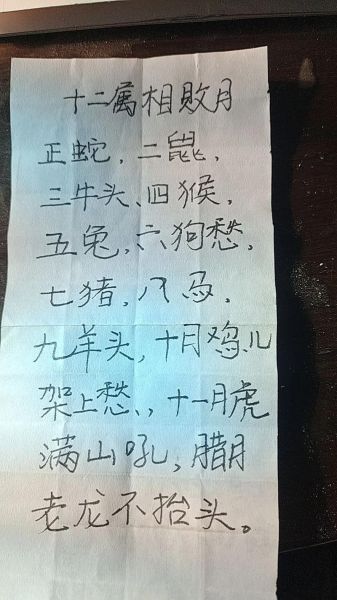 十二属相败月
正蛇，二鼠，
三牛头、四猴，
五兔，六狗愁，
七猪，八马，
九羊头，十月鸡儿
架上愁、，十一月虎
满山吼，腊月
老龙不抬头。